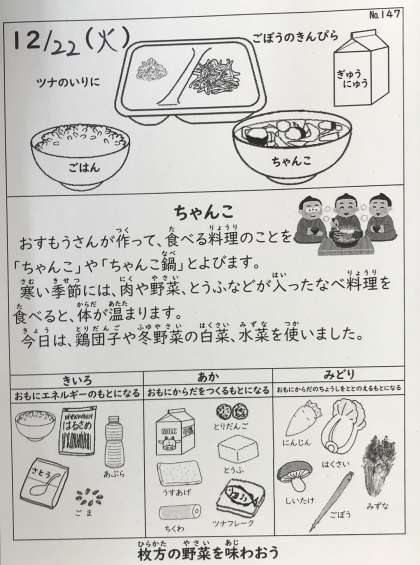 No.147
12/22(火)
ごぼうのきんぴら
ツナのいりに
ぎゅう
にゅう
ごはん
ちゃんこ
ちゃんこ
おすもうさんが作って、食べる料理のことを
「ちゃんこ」や「ちゃんこ鍋」とよびます。
寒い季節には、肉や野菜、とうふなどが入ったなべ料理を
食べると、体が温まります。
今日は、鶏団子や冬野菜の白菜、水菜を使いました。
きいろ
おもにエネルギーのもとになる
はるさめ
あぶら
さとう
ごま
あか
おもにからだをつくるもとになる
とりだんご
とうふ
うすあげ
ちくわ
ツナフレーク
みどり
おもにからだのちょうしをととのえるもとになる
にんじん
はくさい
しいたけ
ごぼう
みずな
枚方の野菜を味わおう